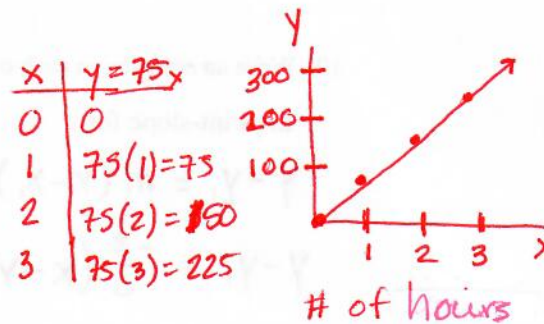 x | y = 75x
0 | 0
1 | 75(1) = 75
2 | 75(2) = 150
3 | 75(3) = 225
y
300
200
100
1 2 3 x
# of hours